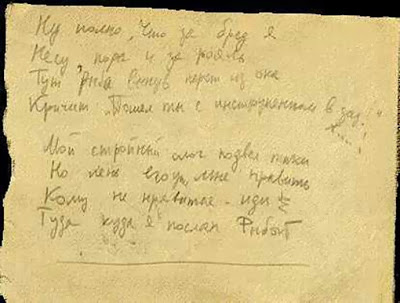 Ну полно, что за бред я
Несу, пора и за рояль
Тут рыба внизу из окна
Кричит „Пошел ты с инструментом в зад!"
Мой стройный слог подвел таки
Но лень его мне править
Кому не нравится - иди
Туда куда я послан Рыбой